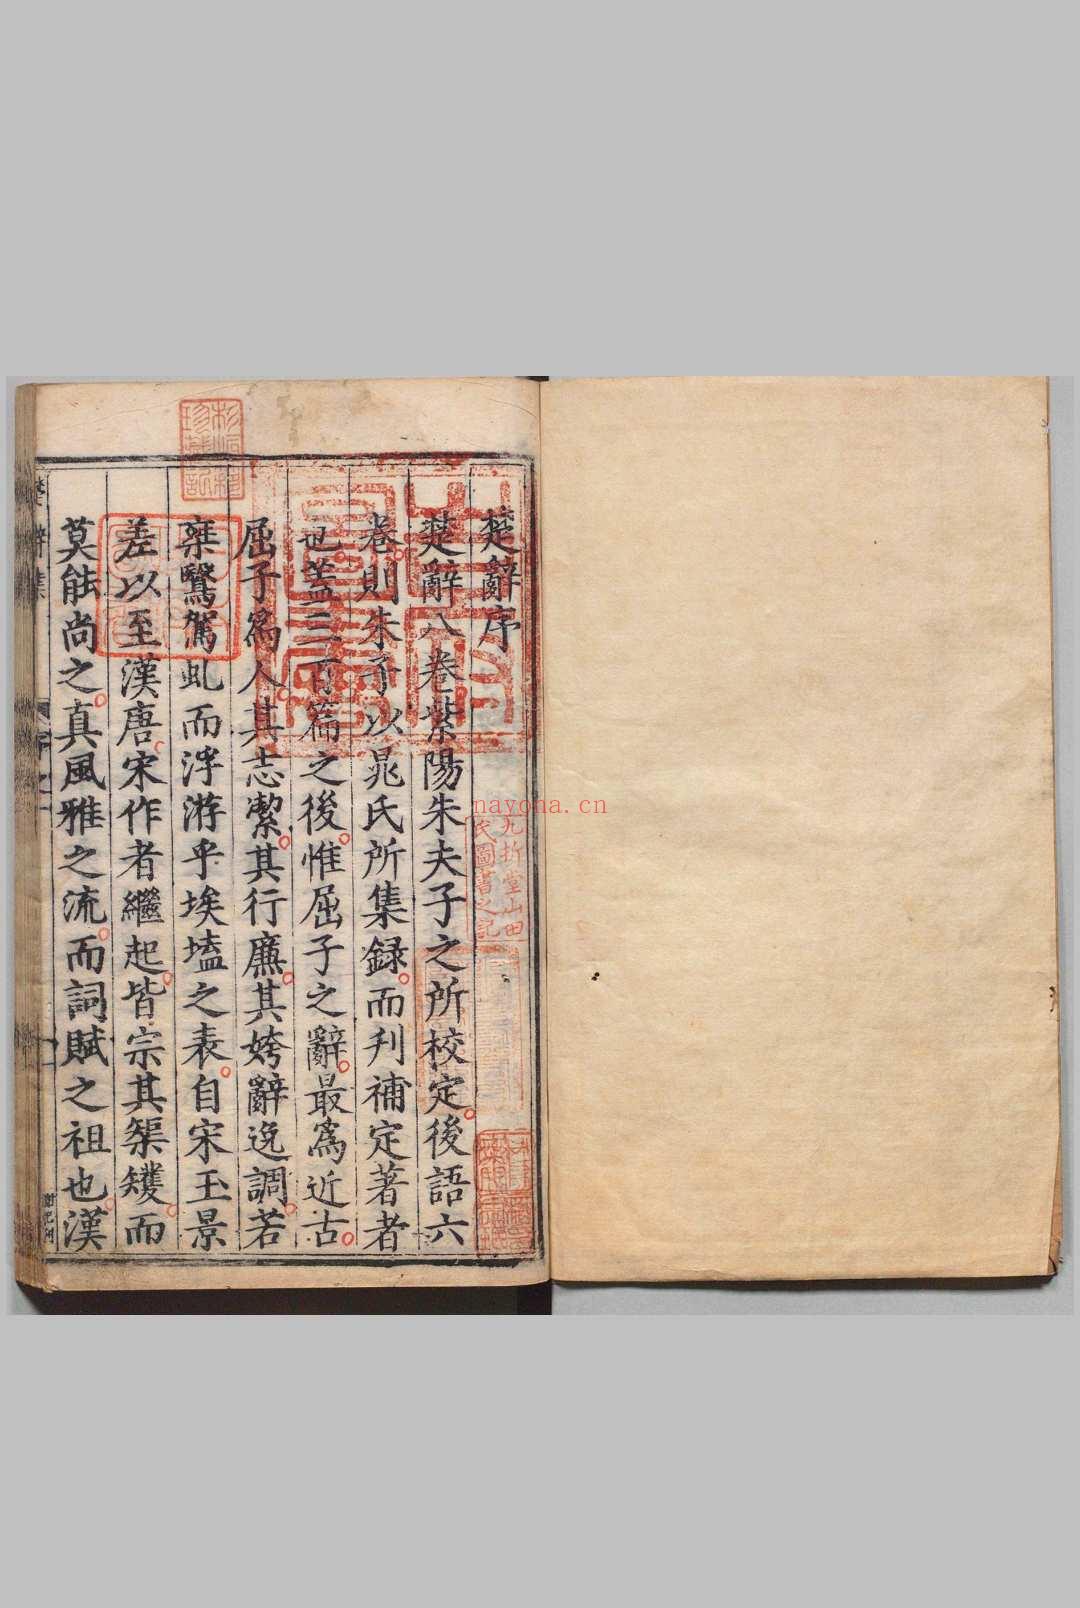 楚辭序
楚辭八卷紫陽朱夫子之所校定後語六
卷則朱子以晁氏所集録而刋補定著者
也盖三百篇之後惟屈子之辭最爲近古
屈子爲人其志潔其行廉其姱辭逸調若
椉鷖駕虬而浮游乎埃壒之表自宋玉景
差以至漢唐宋作者繼起皆宗其榘矱而
莫能尚之真風雅之流而詞賦之祖也漢
九折堂山田
氏圖書之記
nayona.cn